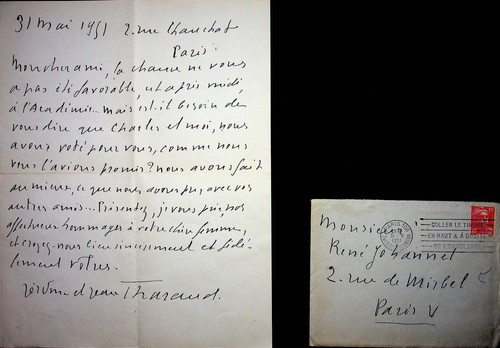 31 Mai 1951 2. rue Chauchat
Paris
Mon cher ami, la chance ne vous
a pas été favorable, cet après midi,
à l'Académie... mais est-il besoin de
vous dire que Charles et moi, nous
avons voté pour vous, comme nous
vous l'avions promis? Nous avons fait
au mieux, ce que nous avons pu, avec vos
autres amis... Présentez, je vous prie, nos
affectueux hommages à votre chère femme,
et croyez-nous bien sincèrement et fidè-
lement vôtres.
Jérôme et Jean Tharaud.
COLLER LE TIMBRE
EN HAUT & A DROITE
Monsieur
René Johannet
2. rue de Mirbel
Paris V